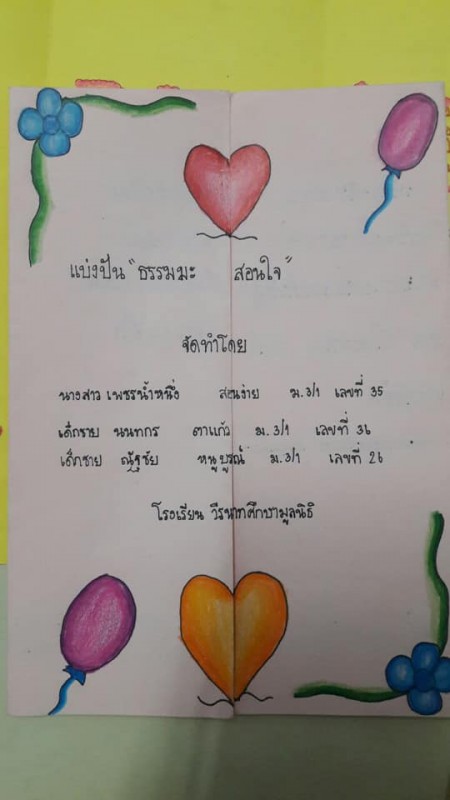 แบ่งปัน "ธรรมมะ สอนใจ"
จัดทำโดย
นางสาว เพชรน้ำหนึ่ง สอนง่าย ม.3/1 เลขที่ 35
เด็กชาย นนทกร ตาแก้ว ม.3/1 เลขที่ 36
เด็กชาย ณัฐชัย หนูบูรณ์ ม.3/1 เลขที่ 26
โรงเรียน วีรนาทศึกษามูลนิธิ